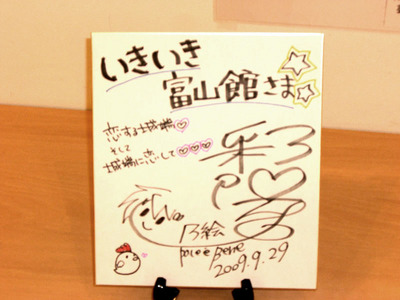 いきいき
富山館さま
恋する城端
そして
城端に恋して
乃絵
2009.9.29